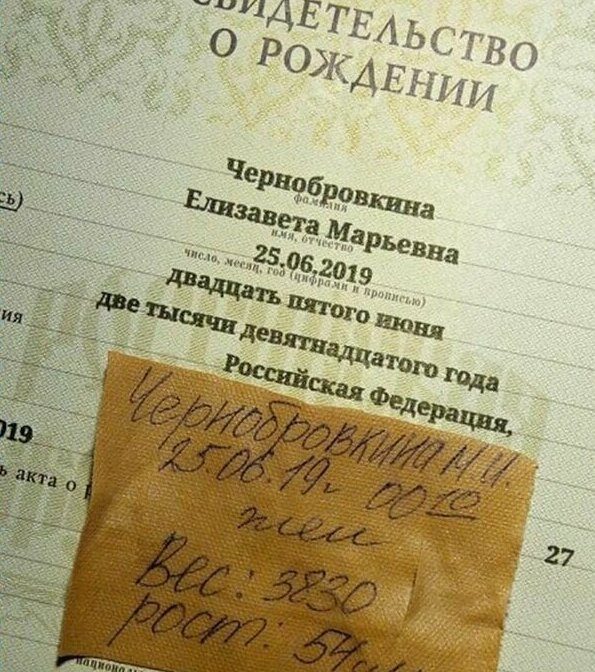 СВИДЕТЕЛЬСТВО
О РОЖДЕНИИ
Чернобровкина
фамилия
Елизавета Марьевна
имя, отчество
25.06.2019
число, месяц, год (цифрами и прописью)
двадцать пятого июня
две тысячи девятнадцатого года
Российская Федерация,
Чернобровкина М.И.
25.06.19г 00 10
жен
27
Вес: 3830
рост: 54